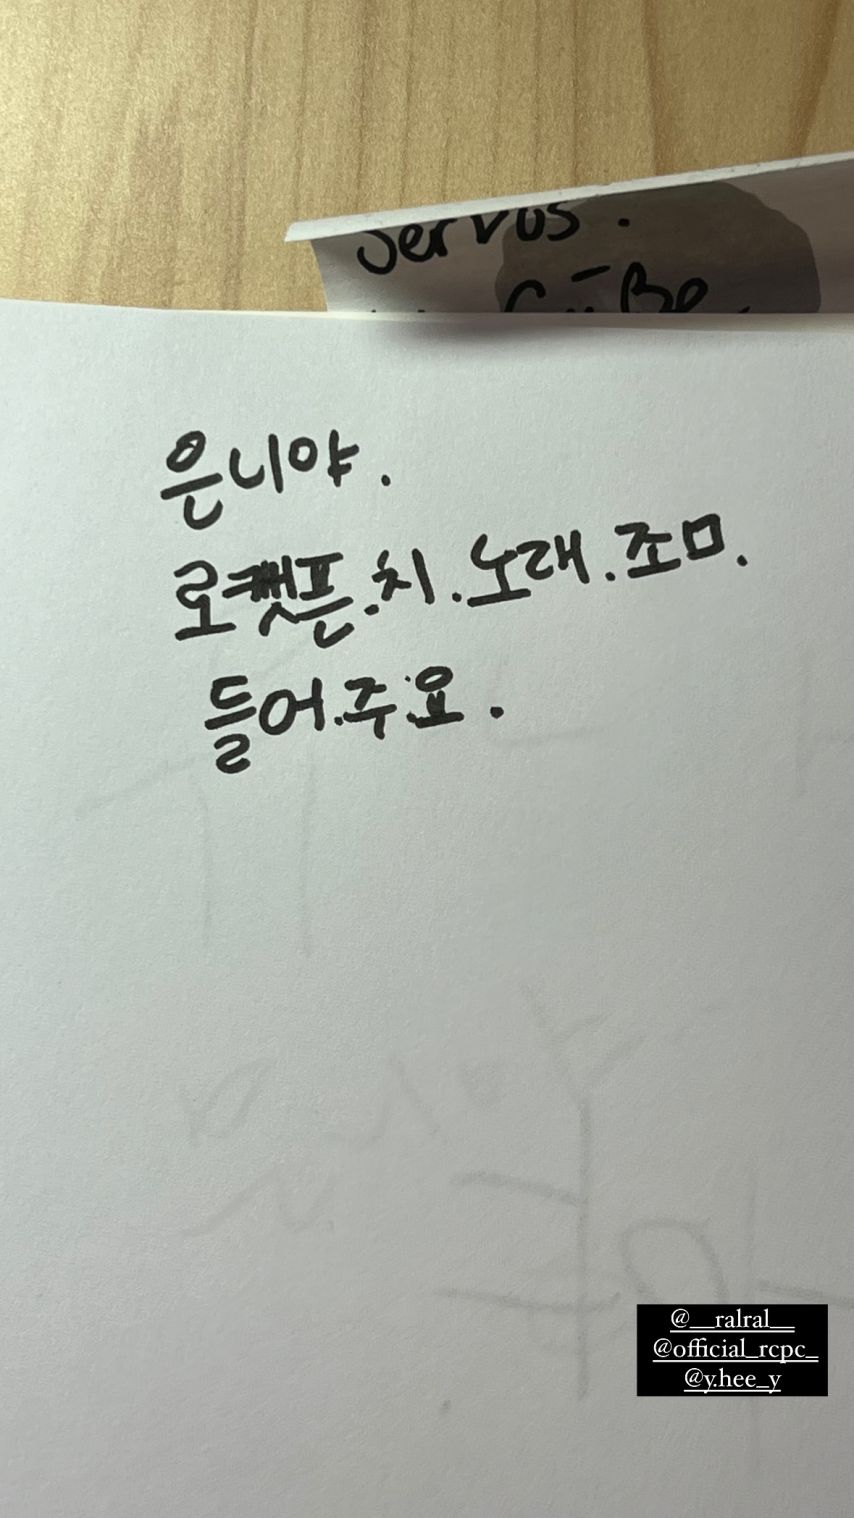 Servos.
은니야.
로켓픈.치.노래.조ㅁ.
들어.주.요.
@__ralral__
@official_rcpc_
@y.hee_y